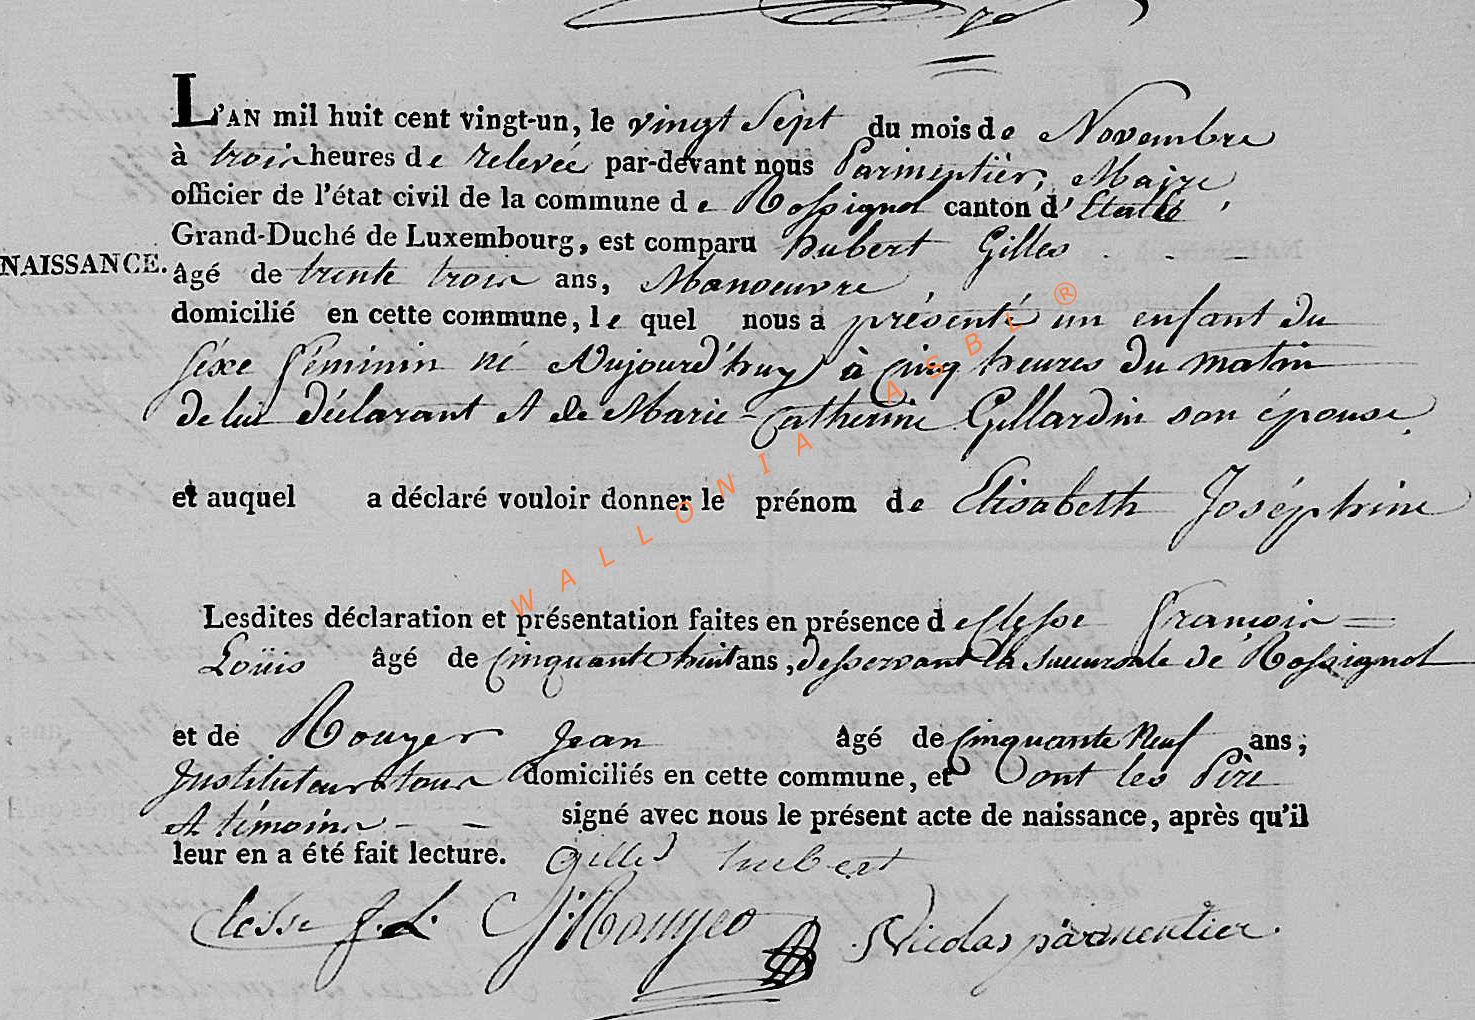 L'AN mil huit cent vingt-un, le vingt Sept du mois de Novembre
à trois heures de relevée par-devant nous Parmentier, Maire
officier de l'état civil de la commune de Rossignol canton d'Etalle,
Grand-Duché de Luxembourg, est comparu hubert Gilles
NAISSANCE.
âgé de trente trois ans, Manoeuvre,
domicilié en cette commune, le quel nous a présenté un enfant du
séxe féminin né Aujourd'huy à Cinq heures du matin
de lui déclarant et de Marie-Catherine Gillardin son épouse.
et auquel a déclaré vouloir donner le prénom de Elisabeth Joséphine
Lesdites déclaration et présentation faites en présence de Clesse François
Loüis âgé de Cinquante huit ans, desservant la succursale de Rossignol
et de Rouyer Jean âgé de Cinquante Neuf ans,
Instituteur tous domiciliés en cette commune, et ont les Père
et témoins signé avec nous le présent acte de naissance, après qu'il
leur en a été fait lecture. Gilles hubert
Clesse f. L. J: Rouyer Nicolas parmentier.
WALLONIA ASBL ®